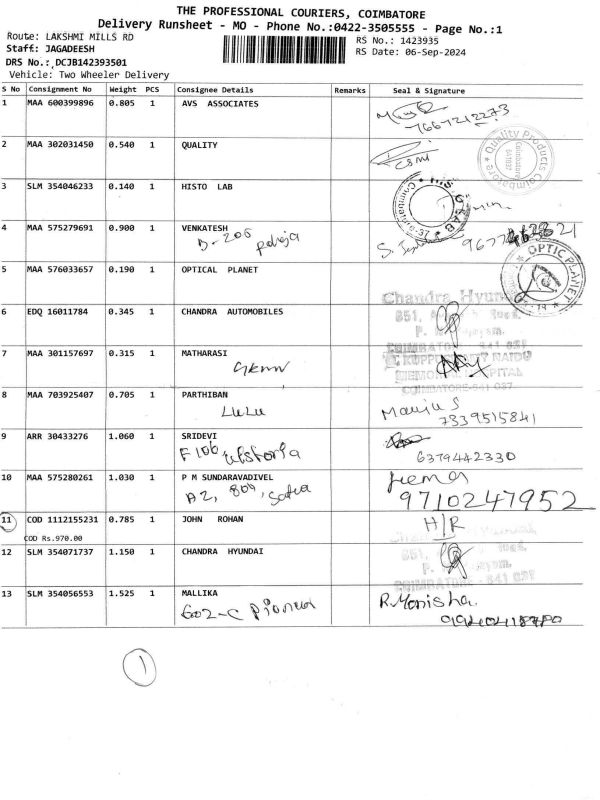 THE PROFESSIONAL COURIERS, COIMBATORE
Delivery Runsheet - MO - Phone No.:0422-3505555 - Page No.:1
Route: LAKSHMI MILLS RD
RS No.: 1423935
Staff: JAGADEESH
RS Date: 06-Sep-2024
DRS No.: DCJB142393501
Vehicle: Two Wheeler Delivery
S No Consignment No Weight PCS Consignee Details Remarks Seal & Signature
1 MAA 600399896 0.805 1 AVS ASSOCIATES
7667212273
2 MAA 302031450 0.540 1 QUALITY
Quality Products Coimbatore
3 SLM 354046233 0.140 1 HISTO LAB
4 MAA 575279691 0.900 1 VENKATESH
B-206
5 MAA 576033657 0.190 1 OPTICAL PLANET
OPTIC PLANET
6 EDQ 16011784 0.345 1 CHANDRA AUTOMOBILES
Chandra Hyun
7 MAA 301157697 0.315 1 MATHARASI
COIMBATORE-641 037
8 MAA 703925407 0.705 1 PARTHIBAN
LULU
7339515841
9 ARR 30433276 1.060 1 SRIDEVI
F106
6379442330
10 MAA 575280261 1.030 1 P M SUNDARAVADIVEL
A2, 809,
Hema
9710247952
11 COD 1112155231 0.785 1 JOHN ROHAN
COD Rs.970.00
H/R
12 SLM 354071737 1.150 1 CHANDRA HYUNDAI
13 SLM 354056553 1.525 1 MALLIKA
G02-C Pioneer
R. Monisha
1